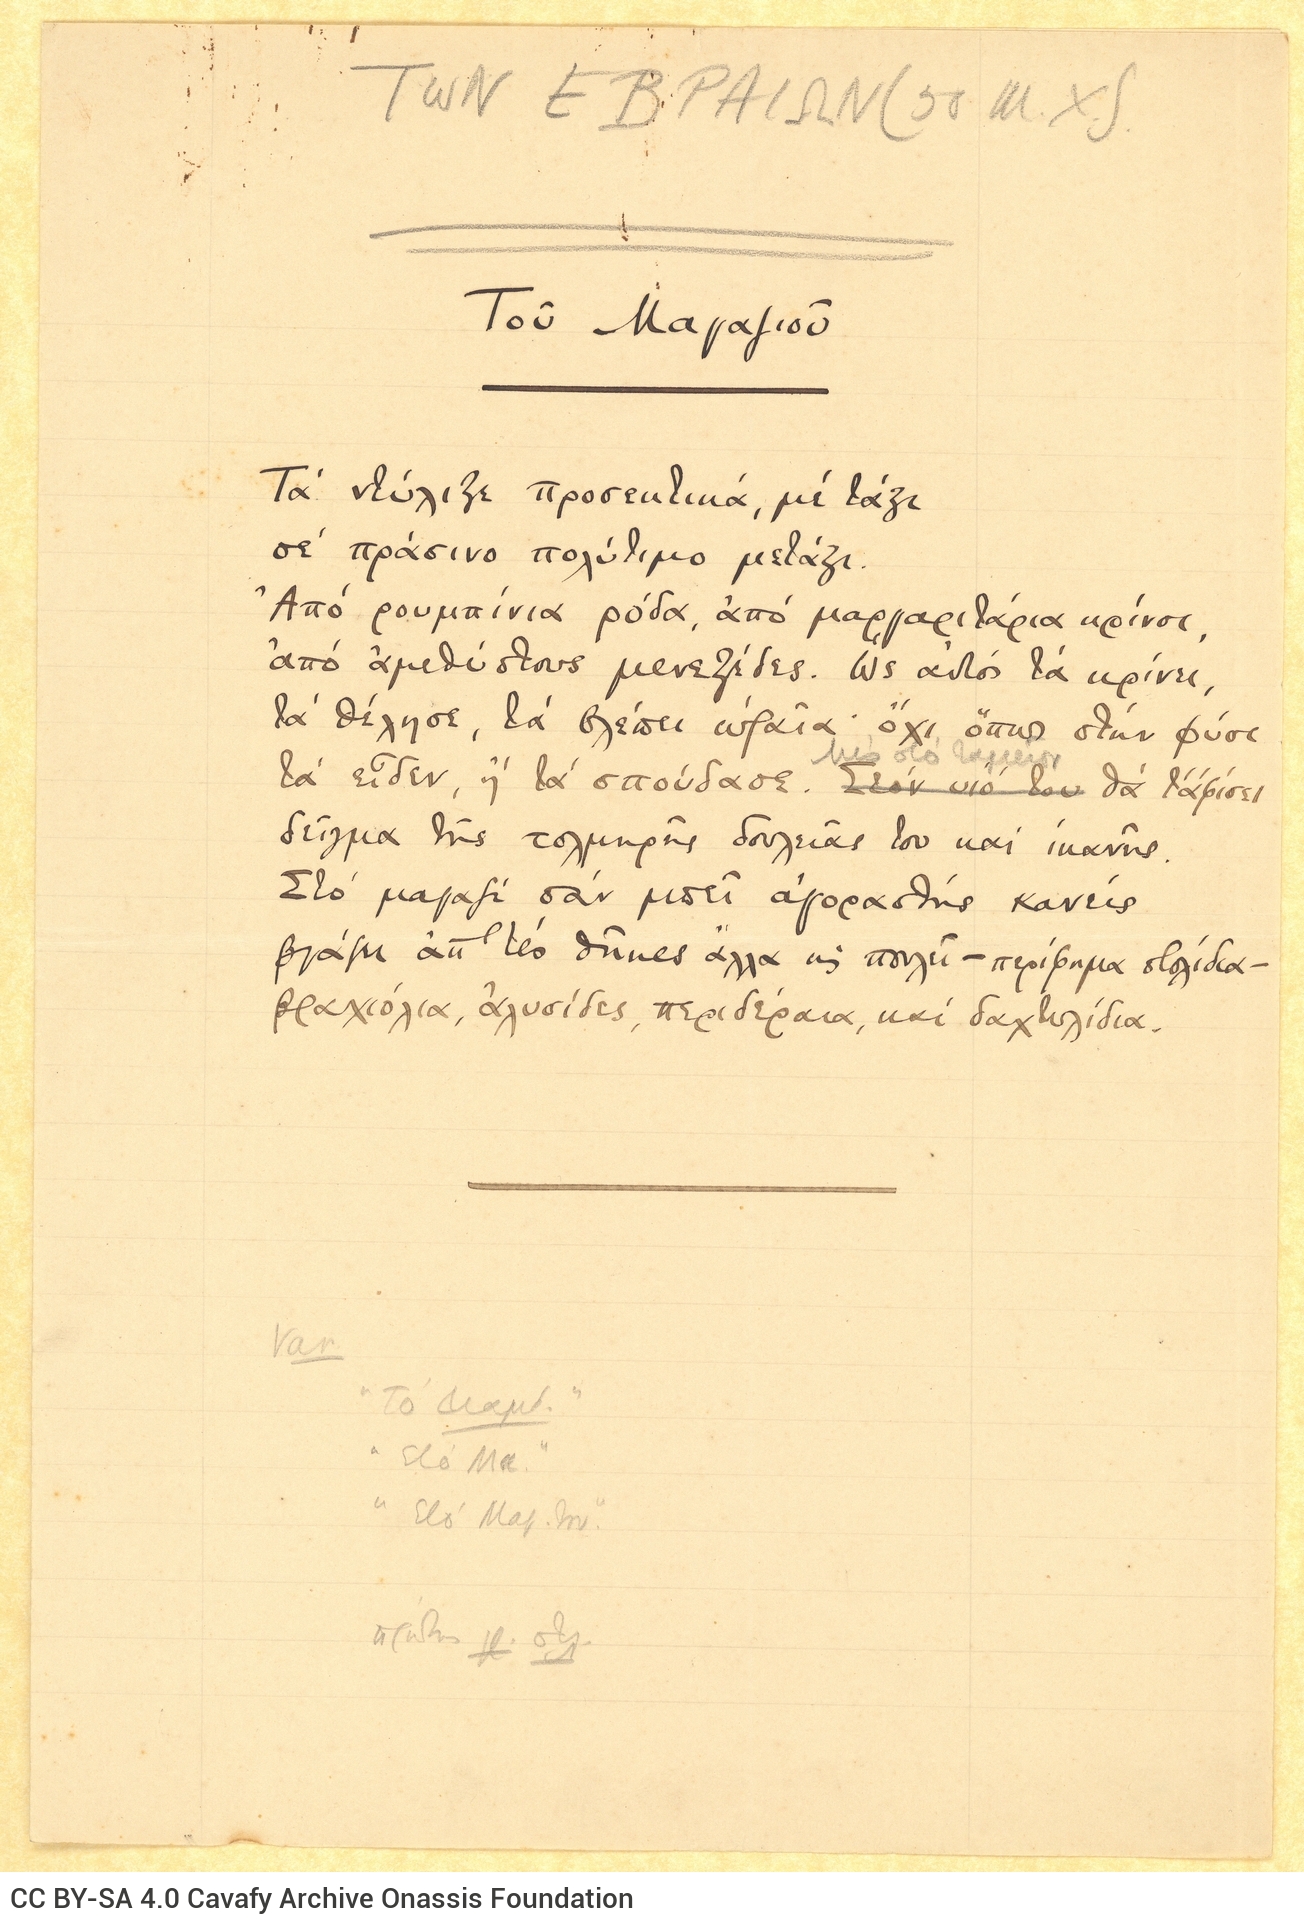 ΤωΝ ΕΒΡΑΙΩΝ (50 μ.Χ.).
Τοῦ Μαγαζιοῦ
Τά ντύλιξε προσεκτικά, μέ τάξι
σέ πράσινο πολύτιμο μετάξι.
Ἀπό ρουμπίνια ρόδα, ἀπό μαργαριτάρια κρίνοι,
ἀπό ἀμεθύστους μενεξέδες. Ὡς αὐτός τά κρίνει,
τά θέλησε, τά βλέπει ὡραῖα· ὄχι ὅπως στήν φύσι
Μές στό ταμεῖον
τά εἶδεν, ἤ τά σπούδασε. Στόν υἱό του θά τἀφίσει
δεῖγμα τῆς τολμηρῆς δουλειᾶς του καί ἱκανῆς.
Στό μαγαζί σάν μπεῖ ἀγοραστής κανείς
βγάζει ἀπ' τές θῆκες ἄλλα κι πουλεῖ – περίφημα στολίδια –
βραχιόλια, ἀλυσίδες, περιδέραια, καί δαχτυλίδια.
Var.
"Τό Διαμ."
"Στό Μα."
"Στό Μαγ. του".